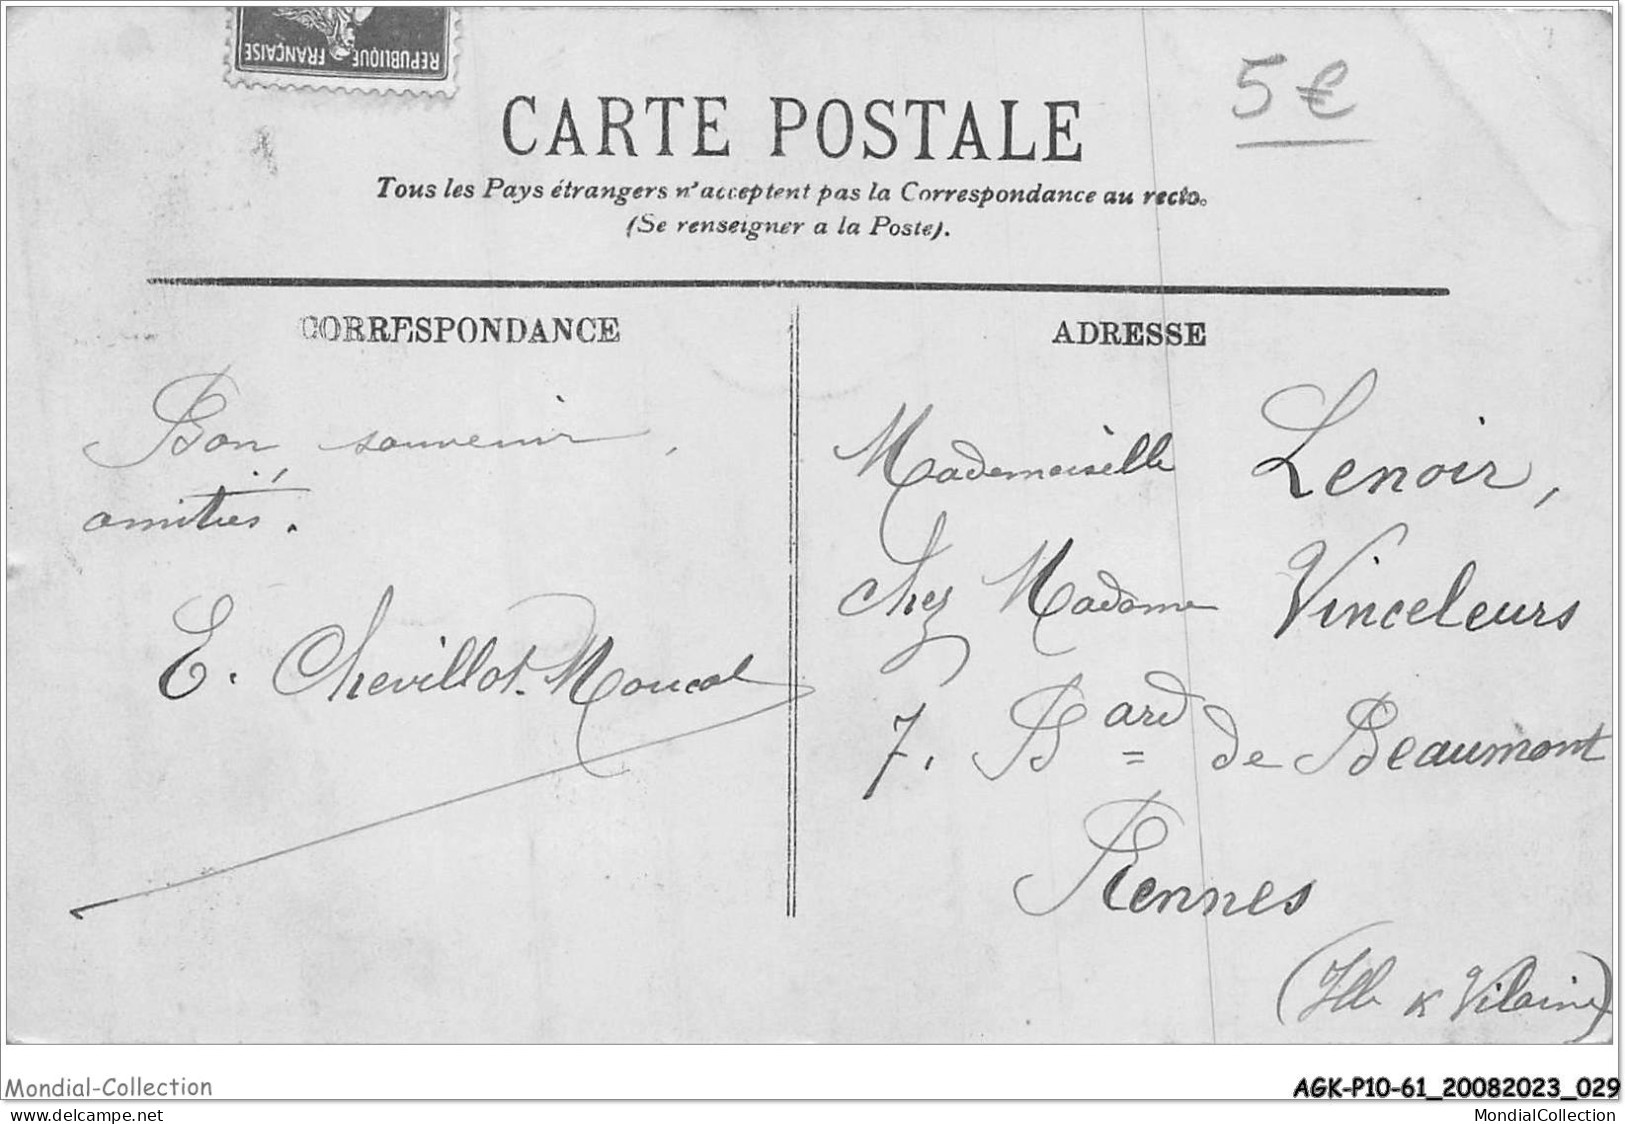 REPUBLIQUE FRANÇAISE
5 €
CARTE POSTALE
Tous les Pays étrangers n'acceptent pas la Correspondance au recto.
(Se renseigner a la Poste).
CORRESPONDANCE
Bon souvenir,
amitiés.
E. Chevillot-Moucal
ADRESSE
Mademoiselle Lenoir,
Chez Madame Vinceleurs
7. Bard = de Beaumont
Rennes
(Ille & Vilaine)
Mondial-Collection
AGK-P10-61_20082023_029
www.delcampe.net
MondialCollection